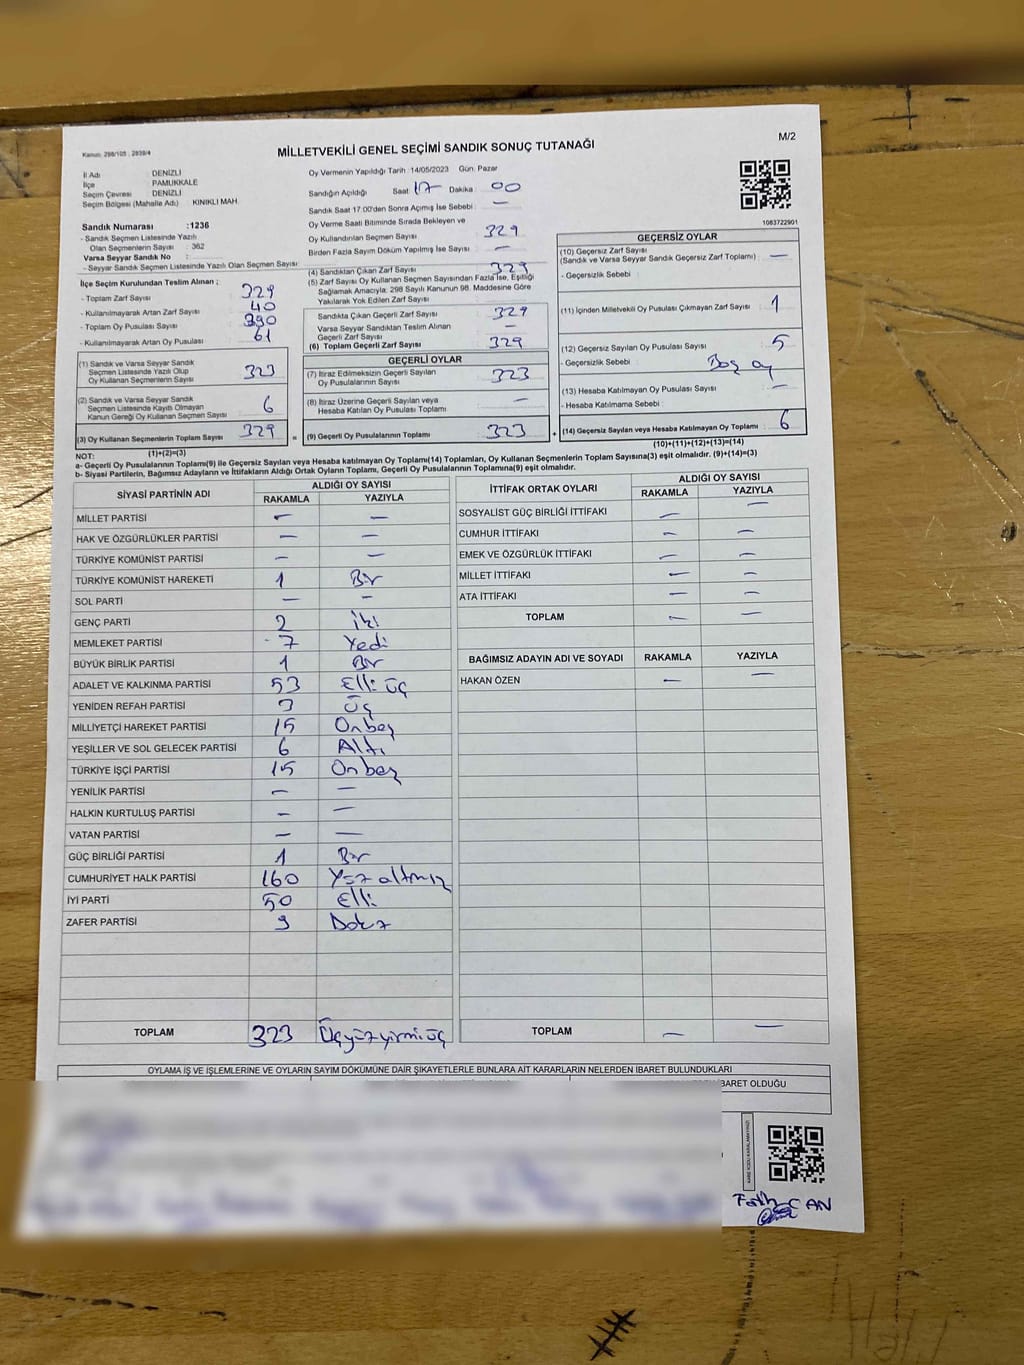 Kanun: 298/105 , 2839/4
MİLLETVEKİLİ GENEL SEÇİMİ SANDIK SONUÇ TUTANAĞI
M/2
İl Adı DENİZLİ
İlçe PAMUKKALE
Seçim Çevresi DENİZLİ
Seçim Bölgesi (Mahalle Adı) : KINIKLI MAH.
Sandık Numarası :1236
- Sandık Seçmen Listesinde Yazılı
Olan Seçmenlerin Sayısı : 362
Varsa Seyyar Sandık No :
- Seyyar Sandık Seçmen Listesinde Yazılı Olan Seçmen Sayısı:
İlçe Seçim Kurulundan Teslim Alınan ;
- Toplam Zarf Sayısı 329
- Kullanılmayarak Artan Zarf Sayısı 40
- Toplam Oy Pusulası Sayısı 390
- Kullanılmayarak Artan Oy Pusulası 61
(1) Sandık ve Varsa Seyyar Sandık
Seçmen Listesinde Yazılı Olup
Oy Kullanan Seçmenlerin Sayısı 323
(2) Sandık ve Varsa Seyyar Sandık
Seçmen Listesinde Kayıtlı Olmayan
Kanun Gereği Oy Kullanan Seçmen Sayısı 6
(3) Oy Kullanan Seçmenlerin Toplam Sayısı 329 =
(1)+(2)=(3)
Oy Vermenin Yapıldığı Tarih :14/05/2023 Gün: Pazar
Sandığın Açıldığı Saat: 17 Dakika : 00
Sandık Saat 17:00'den Sonra Açılmış İse Sebebi : —
Oy Verme Saati Bitiminde Sırada Bekleyen ve
Oy Kullandırılan Seçmen Sayısı 329
Birden Fazla Sayım Döküm Yapılmış İse Sayısı —
(4) Sandıktan Çıkan Zarf Sayısı 329
(5) Zarf Sayısı Oy Kullanan Seçmen Sayısından Fazla İse, Eşitliği
Sağlamak Amacıyla; 298 Sayılı Kanunun 98. Maddesine Göre
Yakılarak Yok Edilen Zarf Sayısı
Sandıkta Çıkan Geçerli Zarf Sayısı 329
Varsa Seyyar Sandıktan Teslim Alınan
Geçerli Zarf Sayısı —
(6) Toplam Geçerli Zarf Sayısı 329
GEÇERLİ OYLAR
(7) İtiraz Edilmeksizin Geçerli Sayılan
Oy Pusulalarının Sayısı 323
(8) İtiraz Üzerine Geçerli Sayılan veya
Hesaba Katılan Oy Pusulası Toplamı —
(9) Geçerli Oy Pusulalarının Toplamı 323 +
1083722901
GEÇERSİZ OYLAR
(10) Geçersiz Zarf Sayısı
(Sandık ve Varsa Seyyar Sandık Geçersiz Zarf Toplamı) —
- Geçersizlik Sebebi :
(11) İçinden Milletvekili Oy Pusulası Çıkmayan Zarf Sayısı 1
(12) Geçersiz Sayılan Oy Pusulası Sayısı 5
- Geçersizlik Sebebi : Boş oy
(13) Hesaba Katılmayan Oy Pusulası Sayısı —
- Hesaba Katılmama Sebebi :
(14) Geçersiz Sayılan veya Hesaba Katılmayan Oy Toplamı 6
(10)+(11)+(12)+(13)=(14)
NOT:
a- Geçerli Oy Pusulalarının Toplamı(9) ile Geçersiz Sayılan veya Hesaba Katılmayan Oy Toplamı(14) Toplamları, Oy Kullanan Seçmenlerin Toplam Sayısına(3) eşit olmalıdır. (9)+(14)=(3)
b- Siyasi Partilerin, Bağımsız Adayların ve İttifakların Aldığı Ortak Oyların Toplamı, Geçerli Oy Pusulalarının Toplamına(9) eşit olmalıdır.
SİYASİ PARTİNİN ADI ALDIĞI OY SAYISI
RAKAMLA YAZIYLA
MİLLET PARTİSİ — —
HAK VE ÖZGÜRLÜKLER PARTİSİ — —
TÜRKİYE KOMÜNİST PARTİSİ — —
TÜRKİYE KOMÜNİST HAREKETİ 1 Bir
SOL PARTİ — —
GENÇ PARTİ 2 İki
MEMLEKET PARTİSİ 7 Yedi
BÜYÜK BİRLİK PARTİSİ 1 Bir
ADALET VE KALKINMA PARTİSİ 53 Elli üç
YENİDEN REFAH PARTİSİ 3 Üç
MİLLİYETÇİ HAREKET PARTİSİ 15 Onbeş
YEŞİLLER VE SOL GELECEK PARTİSİ 6 Altı
TÜRKİYE İŞÇİ PARTİSİ 15 Onbeş
YENİLİK PARTİSİ — —
HALKIN KURTULUŞ PARTİSİ — —
VATAN PARTİSİ — —
GÜÇ BİRLİĞİ PARTİSİ 1 Bir
CUMHURİYET HALK PARTİSİ 160 Yüz altmış
İYİ PARTİ 50 Elli
ZAFER PARTİSİ 9 Dokuz
TOPLAM 323 Üçyüzyirmiüç
İTTİFAK ORTAK OYLARI ALDIĞI OY SAYISI
RAKAMLA YAZIYLA
SOSYALİST GÜÇ BİRLİĞİ İTTİFAKI — —
CUMHUR İTTİFAKI — —
EMEK VE ÖZGÜRLÜK İTTİFAKI — —
MİLLET İTTİFAKI — —
ATA İTTİFAKI — —
TOPLAM — —
BAĞIMSIZ ADAYIN ADI VE SOYADI RAKAMLA YAZIYLA
HAKAN ÖZEN — —
TOPLAM — —
OYLAMA İŞ VE İŞLEMLERİNE VE OYLARIN SAYIM DÖKÜMÜNE DAİR ŞİKAYETLERLE BUNLARA AİT KARARLARIN NELERDEN İBARET BULUNDUKLARI
İBARET OLDUĞU
Fatih CAN